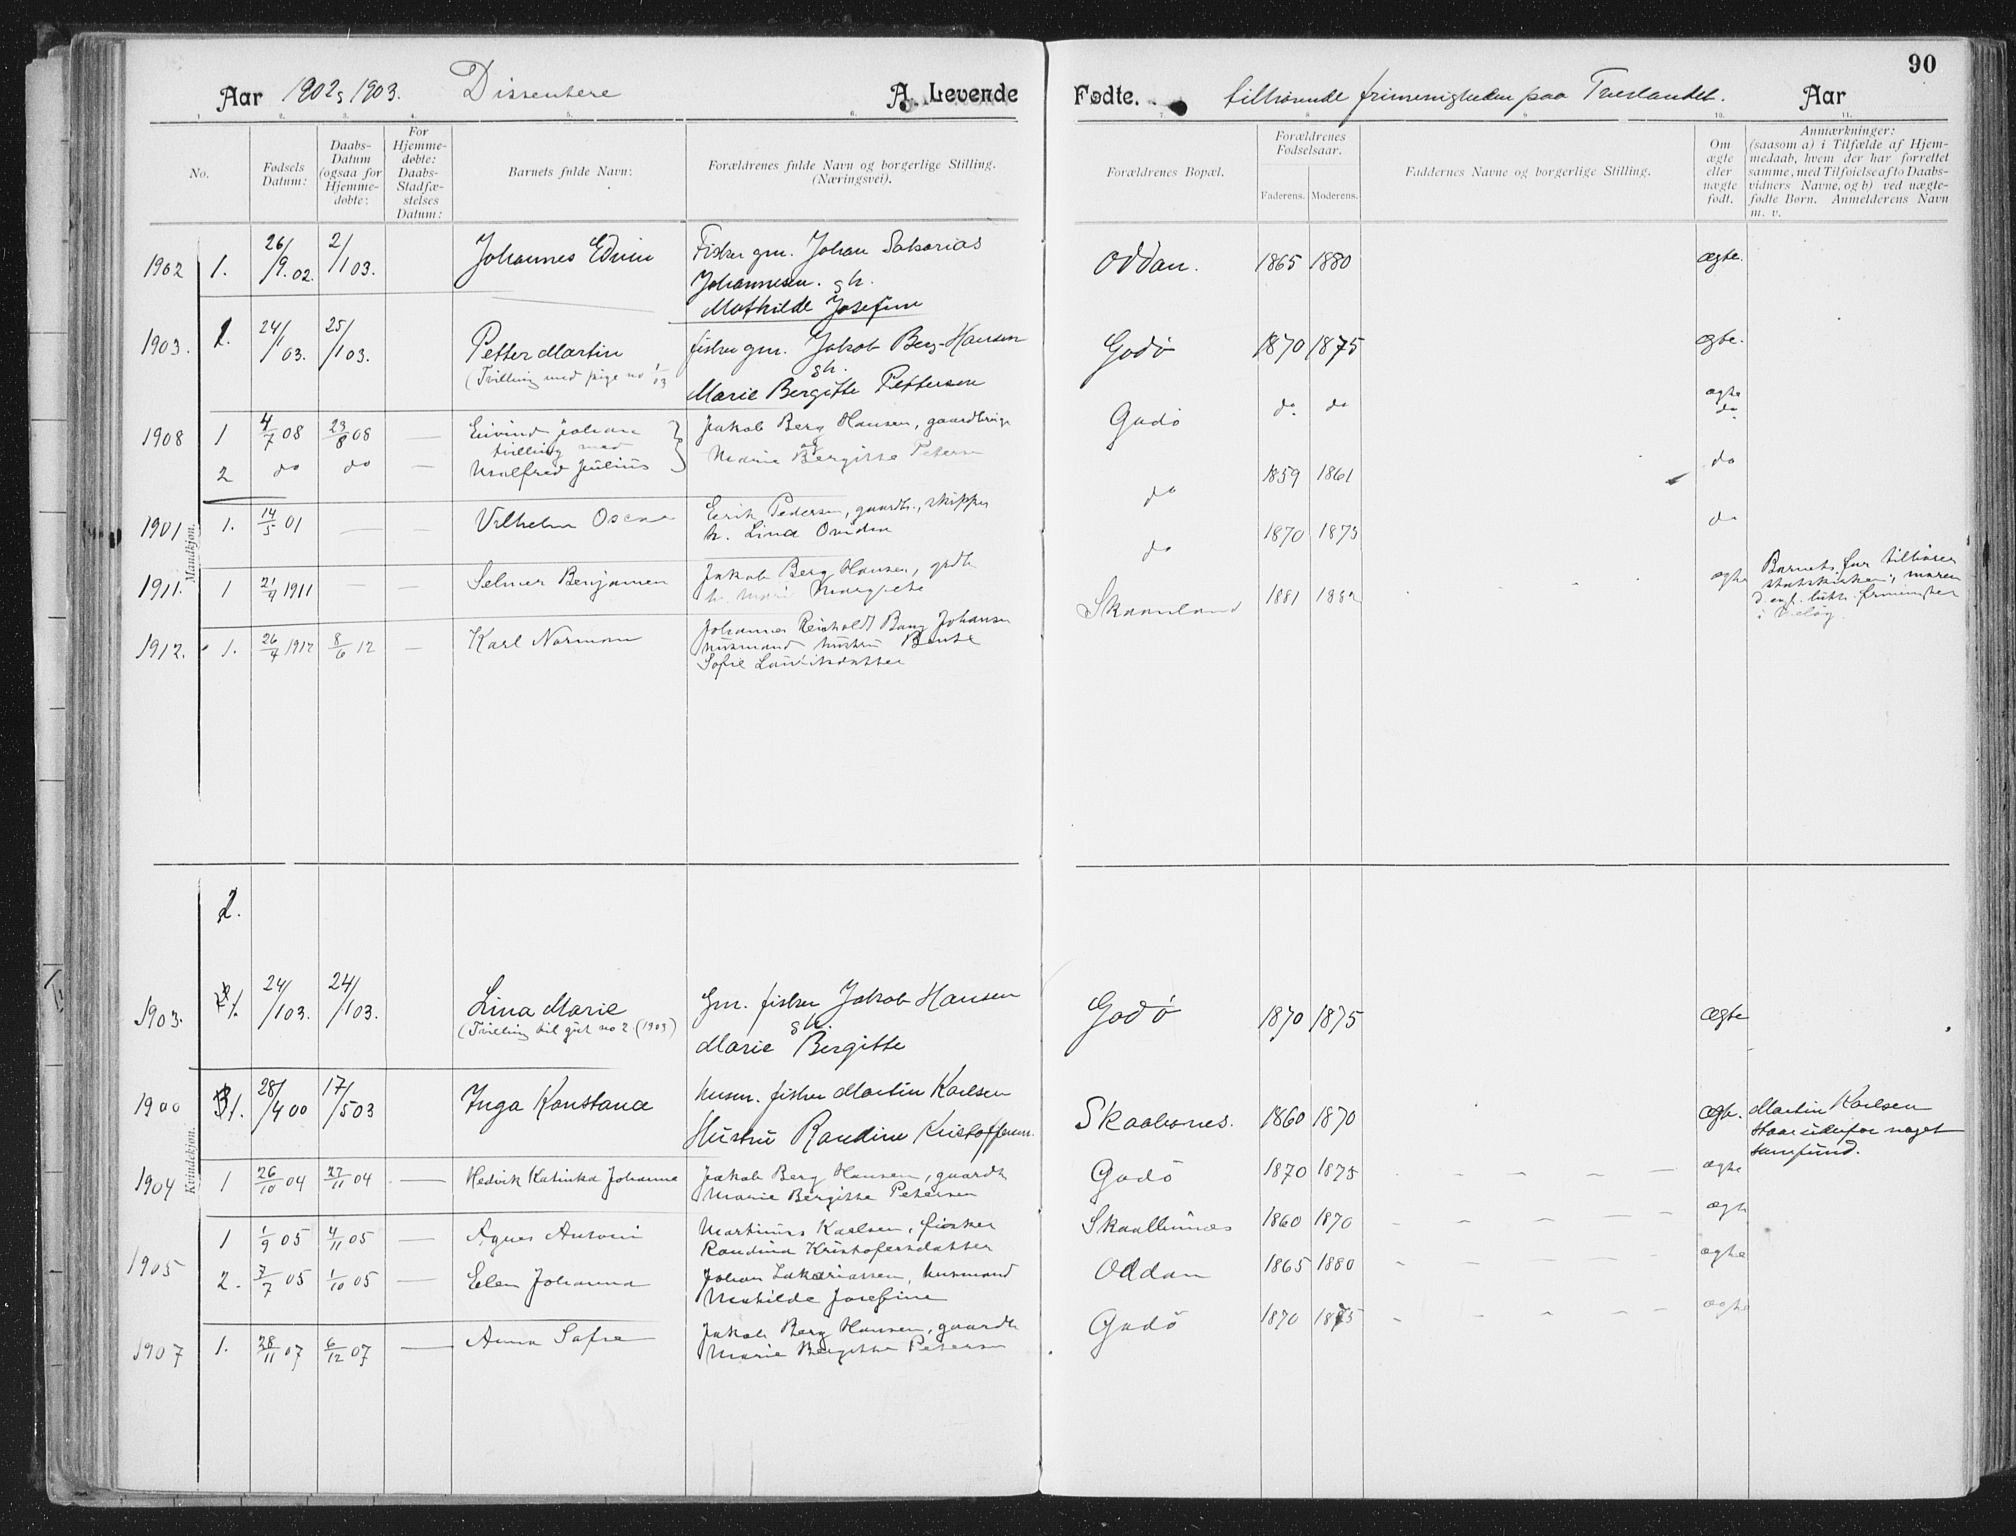 90
Aar 1902, 1903. Dissentere A. Levende Fødte. tilhørende frimenigheden paa Tverlandet. Aar
1. 2. 3. 4. 5. 6. 7. 8. 9. 10. 11.
No.
Fødsels Datum:
Daabs-Datum (ogsaa for Hjemme-døbte:
For Hjemme-døbte: Daabs-Stadfæ-stelses Datum:
Barnets fulde Navn:
Forældrenes fulde Navn og borgerlige Stilling. (Næringsvei).
Forældrenes Bopæl.
Forældrenes Fødselsaar.
Faderens. Moderens.
Faddernes Navne og borgerlige Stilling.
Om ægte eller uægte født.
Anmærkninger: (saasom a) i Tilfælde af Hjem-medaab, hvem der har forrettet samme, med Tilføielse af to Daabs-vidners Navne, og b) ved uægte-fødte Børn. Anmelderens Navn m. v.
Mandkjøn.
1902 1. 26/9.02. 2/1 03. Johannes Edvin Fisker gm. Johan Sakarias Oddan. 1865 1880 ægte.
Johannesen. gh.
Mathilde Josefine
1903. 2. 24/1 03. 25/1 03. Petter Martin fisker gm. Jakob Berg-Hansen Godø 1870 1875 ægte.
(Tvilling med pige no 1/03 gh.
Marie Bergitte Pettersen
1908 1 4/7 08 23/8 08 — Eivind Johan Jakob Berg Hansen, gaardbruger Godø do do ægte
tvilling med og do
2 do do — Malfred Julius Marie Bergitte Petersen
1901 1. 14/5 01 — — Vilhelm Oscar Erik Pedersen, gaardb., skipper do 1859 1861 do
h. Lina Ovidia
1911. 1 21/9 1911 — Selmer Benjamen Jakob Berg Hansen, grdb do 1870 1875 do
h. Marie Margrete
1912. 1. 26/4 1912 8/6 12 — Karl Norman Johannes Reinholdt Bang Johansen Skaanland 1881 1882 ægte Barnets far tilhører
husmand hustru Bente statskirken, moren
Sofie Lauritsdatter d. ev. luth. frimenighed
Kvindekjøn.
2.
1903. 1. 24/1 03. 24/1 03. Lina Marie Gm. fisker Jakob Hansen Godø 1870 1875 ægte
(Tvilling til gut no 2 (1903) gh.
Marie Bergitte
1900 1. 28/4 00 17/5 03 Inga Konstanse Husm. fisker Martin Karlsen Skaalbones. 1860 1870 ægte. Martin Karlsen
Hustru Randine Kristoffersen. staar udenfor noget
samfund.
1904 1 26/10 04 27/11 04 — Hedvik Katinka Johanna Jakob Berg Hansen, gaardb Godø 1870 1875 — — — — ægte
Marie Bergitte Petersen
1905 1 1/9 05 4/11 05 — Agnes Antonie Martinus Karlsen, fisker Skaalbunes 1860 1870 — — — — ægte
Randina Kristofersdatter
2. 7/7 05 1/10 05 — Elen Johanna Johan Zakariassen, husmand Oddan 1865 1880 — — — — ægte
Mathilde Josefine
1907 1. 28/11 07 6/12 07 — Anna Sofie Jakob Berg Hansen, gaardb Godø 1870 1875 — — — — ægte
Marie Bergitte Petersen